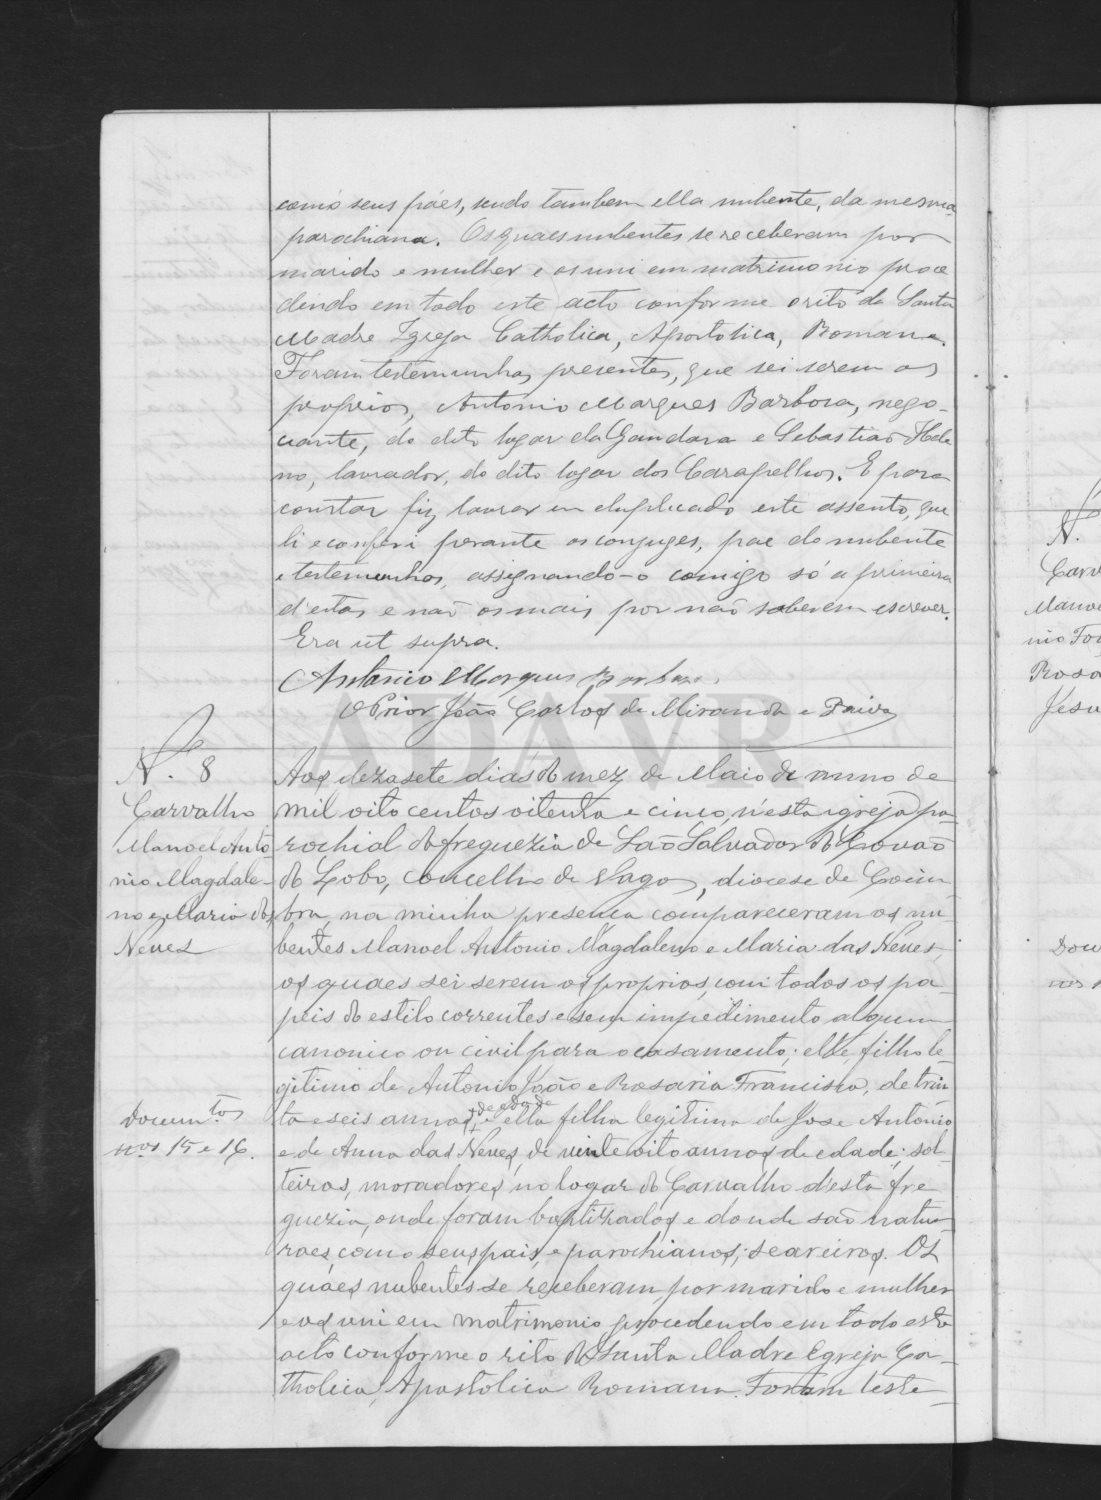 como seus páes, sendo tambem ella nubente, da mesma
parochiana. Os quaes nubentes se receberam por
marido e mulher e os uni em matrimonio proce
dendo em todo este acto conforme o rito da Santa
Madre Igreja Catholica, Apostolica, Romana.
Foram testemunhas presentes, que sei serem os
proprios, Antonio Marques Barbosa, nego-
ciante, do dito logar da Gandara e Sebastião
no, lavrador, do dito logar dos Carapelhos. E para
constar fiz lavrar em duplicado este assento, que
li e conferi perante os conjuges, pae do nubente
e testemunhas, assignando-o comigo só a primeira
d'estas e não os mais por não saberem escrever.
Era ut supra.
Antonio Marques Barbosa
O Prior João Carlos de Miranda e Paiva
N. 8
Carvalho
Manoel Anto
nio Magdale-
no e Maria das
Neves
Docum.tos
nos 15 e 16.
Aos dezasete dias do mez de Maio do anno de
mil oito centos oitenta e cinco, n'esta igreja pa-
rochial da freguezia de São Salvador do Covão
do Lobo, concelho de Vagos, diocese de Coim
bra, na minha presença compareceram os nu-
bentes Manoel Antonio Magdaleno e Maria das Neves,
os quaes sei serem os proprios, com todos os pa-
peis do estilo correntes e sem impedimento algum
canonico ou civil para o casamento; elle, filho le-
gitimo de Antonio João e Rosaria Francisca, de trin
ta e seis annos de edade, e ella filha legitima de Jose Antonio
e de Anna das Neves, de vinte oito annos de edade; sol-
teiros, moradores no logar do Carvalho d'esta fre
guezia, onde foram baptizados e donde são natu-
raes, como seus pais, e parochianos; seareiros. Os
quáes nubentes se receberam por marido e mulher
e os uni em matrimonio procedendo em todo este
acto conforme o rito da Santa Madre Egreja Ca-
tholica, Apostolica Romana. Foram teste-
N.
Carv
Mano
nio
Rosa
Jesu
Docu
nos
ADAVR